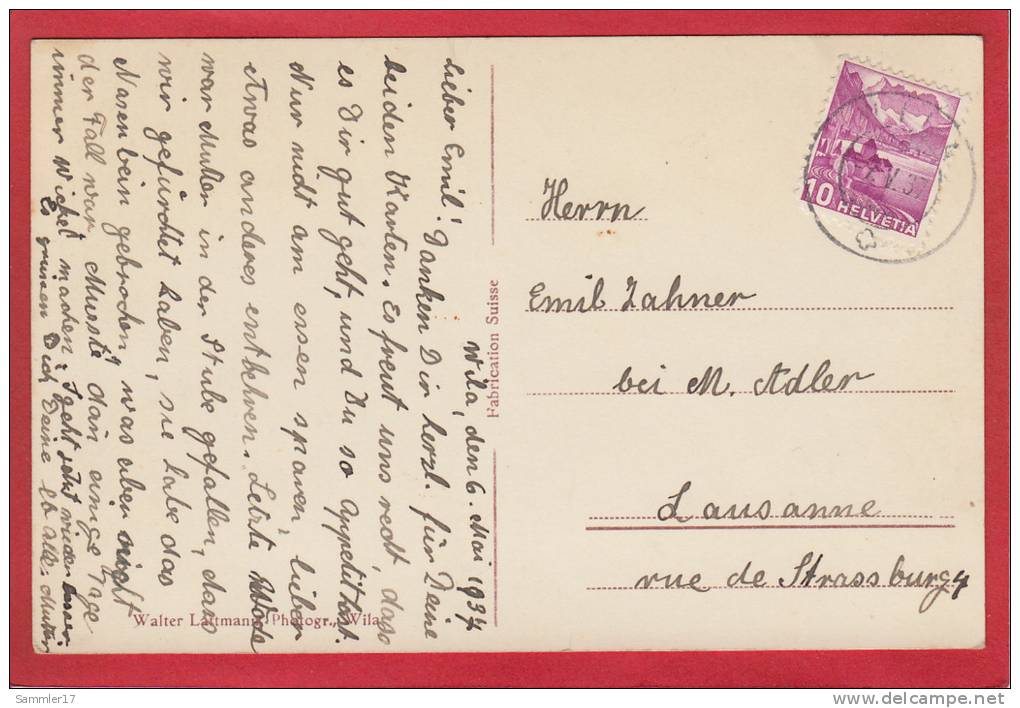 Wila, den 6. Mai 1937
Lieber Emil! Danken Dir herzl. für Deine
beiden Karten. Es freut uns recht, dass
es Dir gut geht, und Du so Appetit hast.
Nur nicht am essen sparen, lieber
etwas anderes entbehren. Letzte Woche
war Mutter in der Stube gefallen, dass
wir gefürchtet haben, sie habe das
Nasenbein gebrochen, was aber nicht
der Fall war. Musste dan einige Tage
immer Wickel machen. geht jetzt wieder besser.
Es grüssen Dich Deine lb. Alle. Mutter
Fabrication Suisse
Walter Lattmann, Photogr., Wila
10 HELVETIA
Herrn
Emil Jahner
bei M. Adler
Lausanne
rue de Strassburg 4
Sammler17
www.delcampe.net